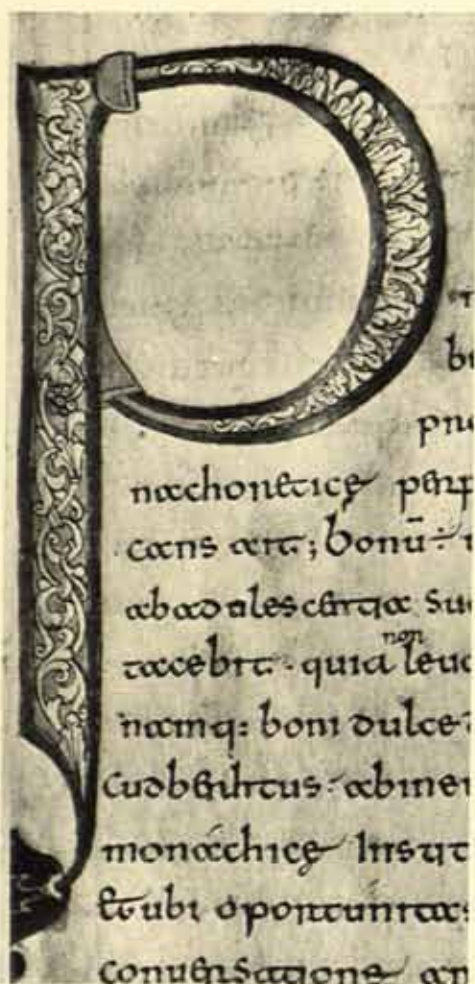 P
bu
prin
nachoretice perp
cans erit; bonū·
ab adulescentia su
non
tacebit · quia leue
namq: boni dulce
Cudberhtus · ab inei
monachice Instit
Et ubi oportunitas
conuersatione an